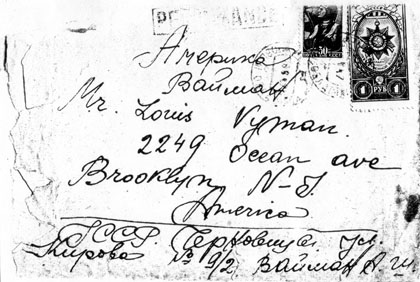 Америка
Вайман
Mr. Louis Vyman.
2249 Ocean ave
Brooklyn N-J.
America
СССР. Черновцы ул.
Кирова № 9/2 Вайман А
50
1 РУБ 1